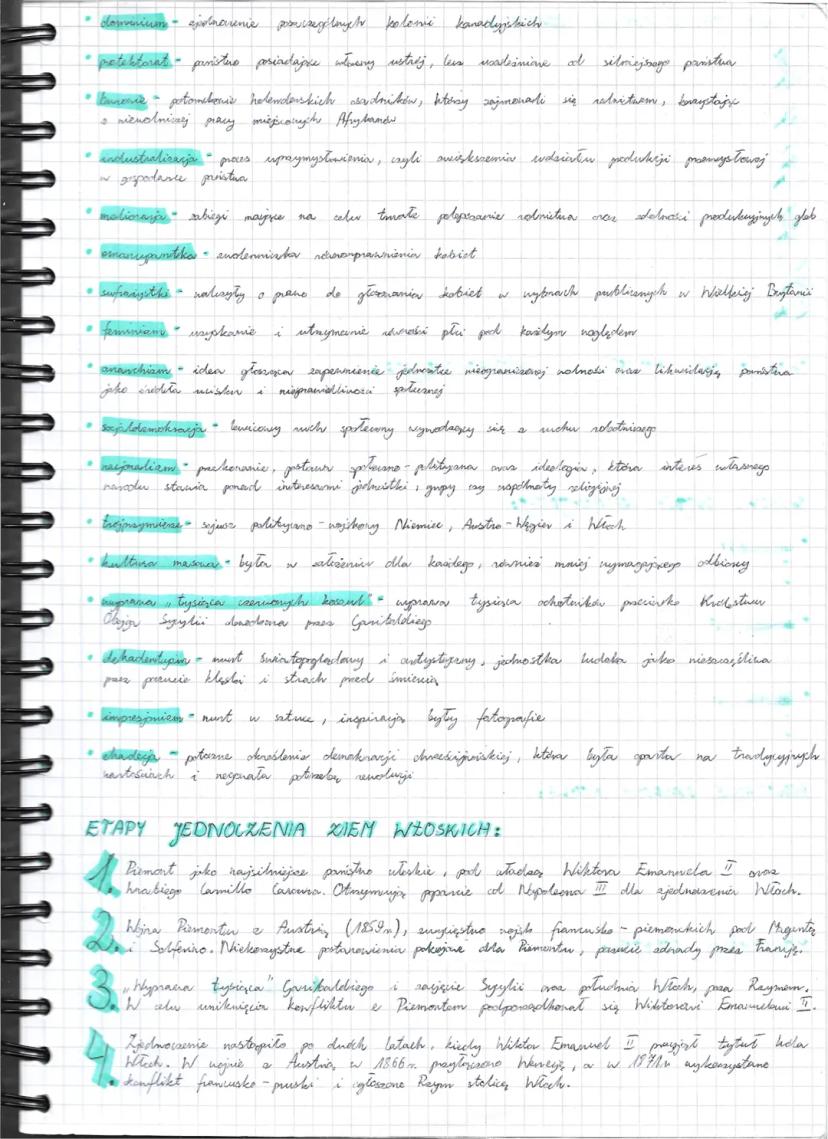 • dominium - zjednoczenie poszczególnych kolonii kanadyjskich
• protektorat - państwo posiadające własny ustrój, lecz uzależnione od silniejszego państwa
• burowie - potomkowie holenderskich osadników, którzy zajmowali się rolnictwem, korzystając
z niewolniczej pracy miejscowych Afrykanów
• industralizacja - proces uprzemysłowienia, czyli zwiększenia udziału produkcji przemysłowej
w gospodarce państwa
• melioracja - zabiegi mające na celu trwałe polepszanie rolnictwa oraz zdolności produkcyjnych gleb
• emancypantka - zwolenniczka równouprawnienia kobiet
• sufrażystki - walczyły o prawo do głosowania kobiet w wyborach publicznych w Wielkiej Brytanii
• feminizm - uzyskanie i utrzymanie równości płci pod każdym względem
• anarchizm - idea głosząca zapewnienie jednostce nieograniczonej wolności oraz likwidację państwa
jako źródła ucisku i niesprawiedliwości społecznej
• socjaldemokracja - lewicowy ruch społeczny wywodzący się z ruchu robotniczego
• nacjonalizm - przekonanie, postawa społeczno-polityczna oraz ideologia, która interes własnego
narodu stawia ponad interesami jednostki, grupy czy wspólnoty religijnej
• trójprzymierze - sojusz polityczno-wojskowy Niemiec, Austro-Węgier i Włoch
• kultura masowa - była w założeniu dla każdego, również mniej wymagającego odbiorcy
• wyprawa "tysiąca czerwonych koszul" - wyprawa tysiąca ochotników przeciwko Królestwu
Obojga Sycylii dowodzona przez Garibaldiego
• dekadentyzm - nurt światopoglądowy i artystyczny, jednostka ludzka jako nieszczęśliwa
przez poczucie klęski i strach przed śmiercią
• impresjonizm - nurt w sztuce, inspiracją były fotografie
• chadecja - potoczne określenie demokracji chrześcijańskiej, która była oparta na tradycyjnych
wartościach i negowała potrzebę rewolucji
ETAPY JEDNOCZENIA ZIEM WŁOSKICH:
1. Piemont jako najsilniejsze państwo włoskie, pod władzą Wiktora Emanuela II oraz
hrabiego Camillo Cavoura. Otrzymują poparcie od Napoleona III dla zjednoczenia Włoch.
2. Wojna Piemontu z Austrią (1859r.), zwycięstwo wojsk francusko-piemonckich pod Magentą
i Solferino. Niekorzystne postanowienia pokojowe dla Piemontu, poczucie zdrady przez Francję.
3. "Wyprawa tysiąca" Garibaldiego i zajęcie Sycylii oraz południa Włoch, poza Rzymem.
W celu uniknięcia konfliktu z Piemontem podporządkował się Wiktorowi Emanuelowi II.
4. Zjednoczenie nastąpiło po dwóch latach, kiedy Wiktor Emanuel II przyjął tytuł króla
Włoch. W wojnie z Austrią w 1866r. przyłączono Wenecję, a w 1871r. wykorzystano
konflikt francusko-pruski i ogłoszono Rzym stolicą Włoch.